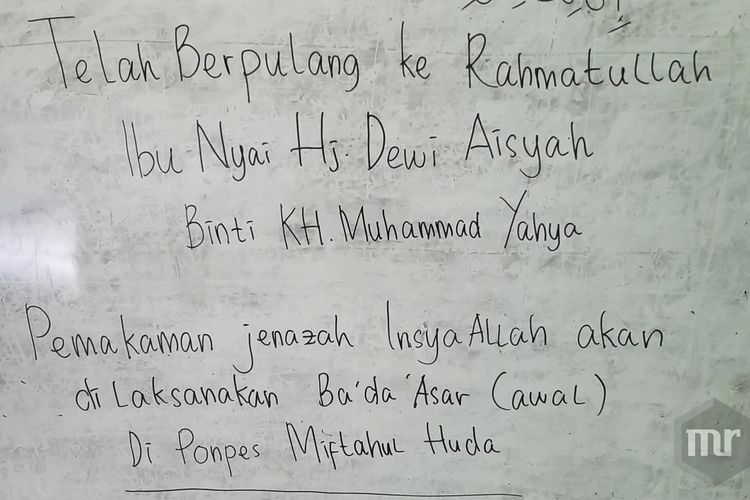 Telah Berpulang ke Rahmatullah
Ibu Nyai Hj. Dewi Aisyah
Binti KH. Muhammad Yahya
Pemakaman jenazah InsyaAllah akan
di Laksanakan Ba'da 'Asar (awal)
Di Ponpes Miftahul Huda
mr